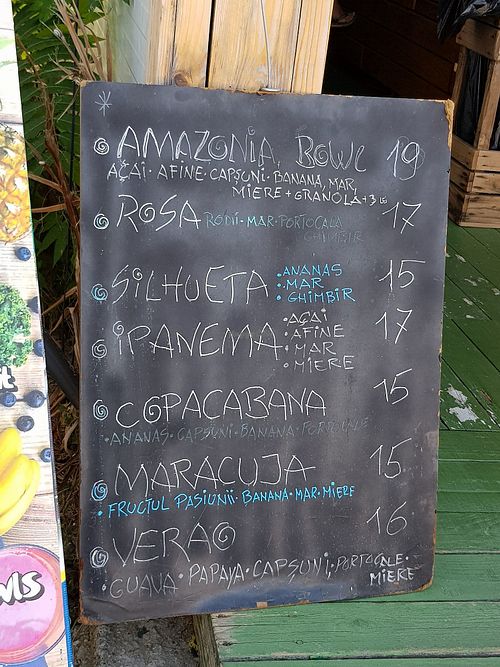 AMAZONIA BOWL 19
AÇAI · AFINE · CAPȘUNI · BANANA, MAR,
MIERE + GRANOLA + 3 LEI
ROSA RODII · MAR · PORTOCALA 17
GHIMBIR
SILHUETA 15
· ANANAS
· MAR
· GHIMBIR
IPANEMA 17
· AÇAI
· AFINE
· MAR
· MIERE
COPACABANA 15
· ANANAS · CAPSUNI · BANANA · PORTOCALE
MARACUJA 15
· FRUCTUL PASIUNII · BANANA · MAR · MIERE
VERAO 16
· GUAVA · PAPAYA · CAPȘUNI · PORTOCALE ·
MIERE